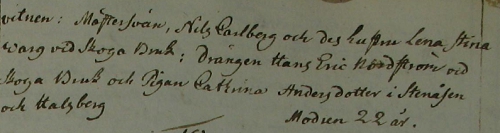 vitnen: Mästersven, Nils Carlberg och des hustru Lena Stina
Warg ved Skoga Bruk; Drängen Hans Eric Nordström ved
Skoga Bruk och Pigan Cathrina Andersdotter i Stenåsen
och Halsberg
Modren 22 år.